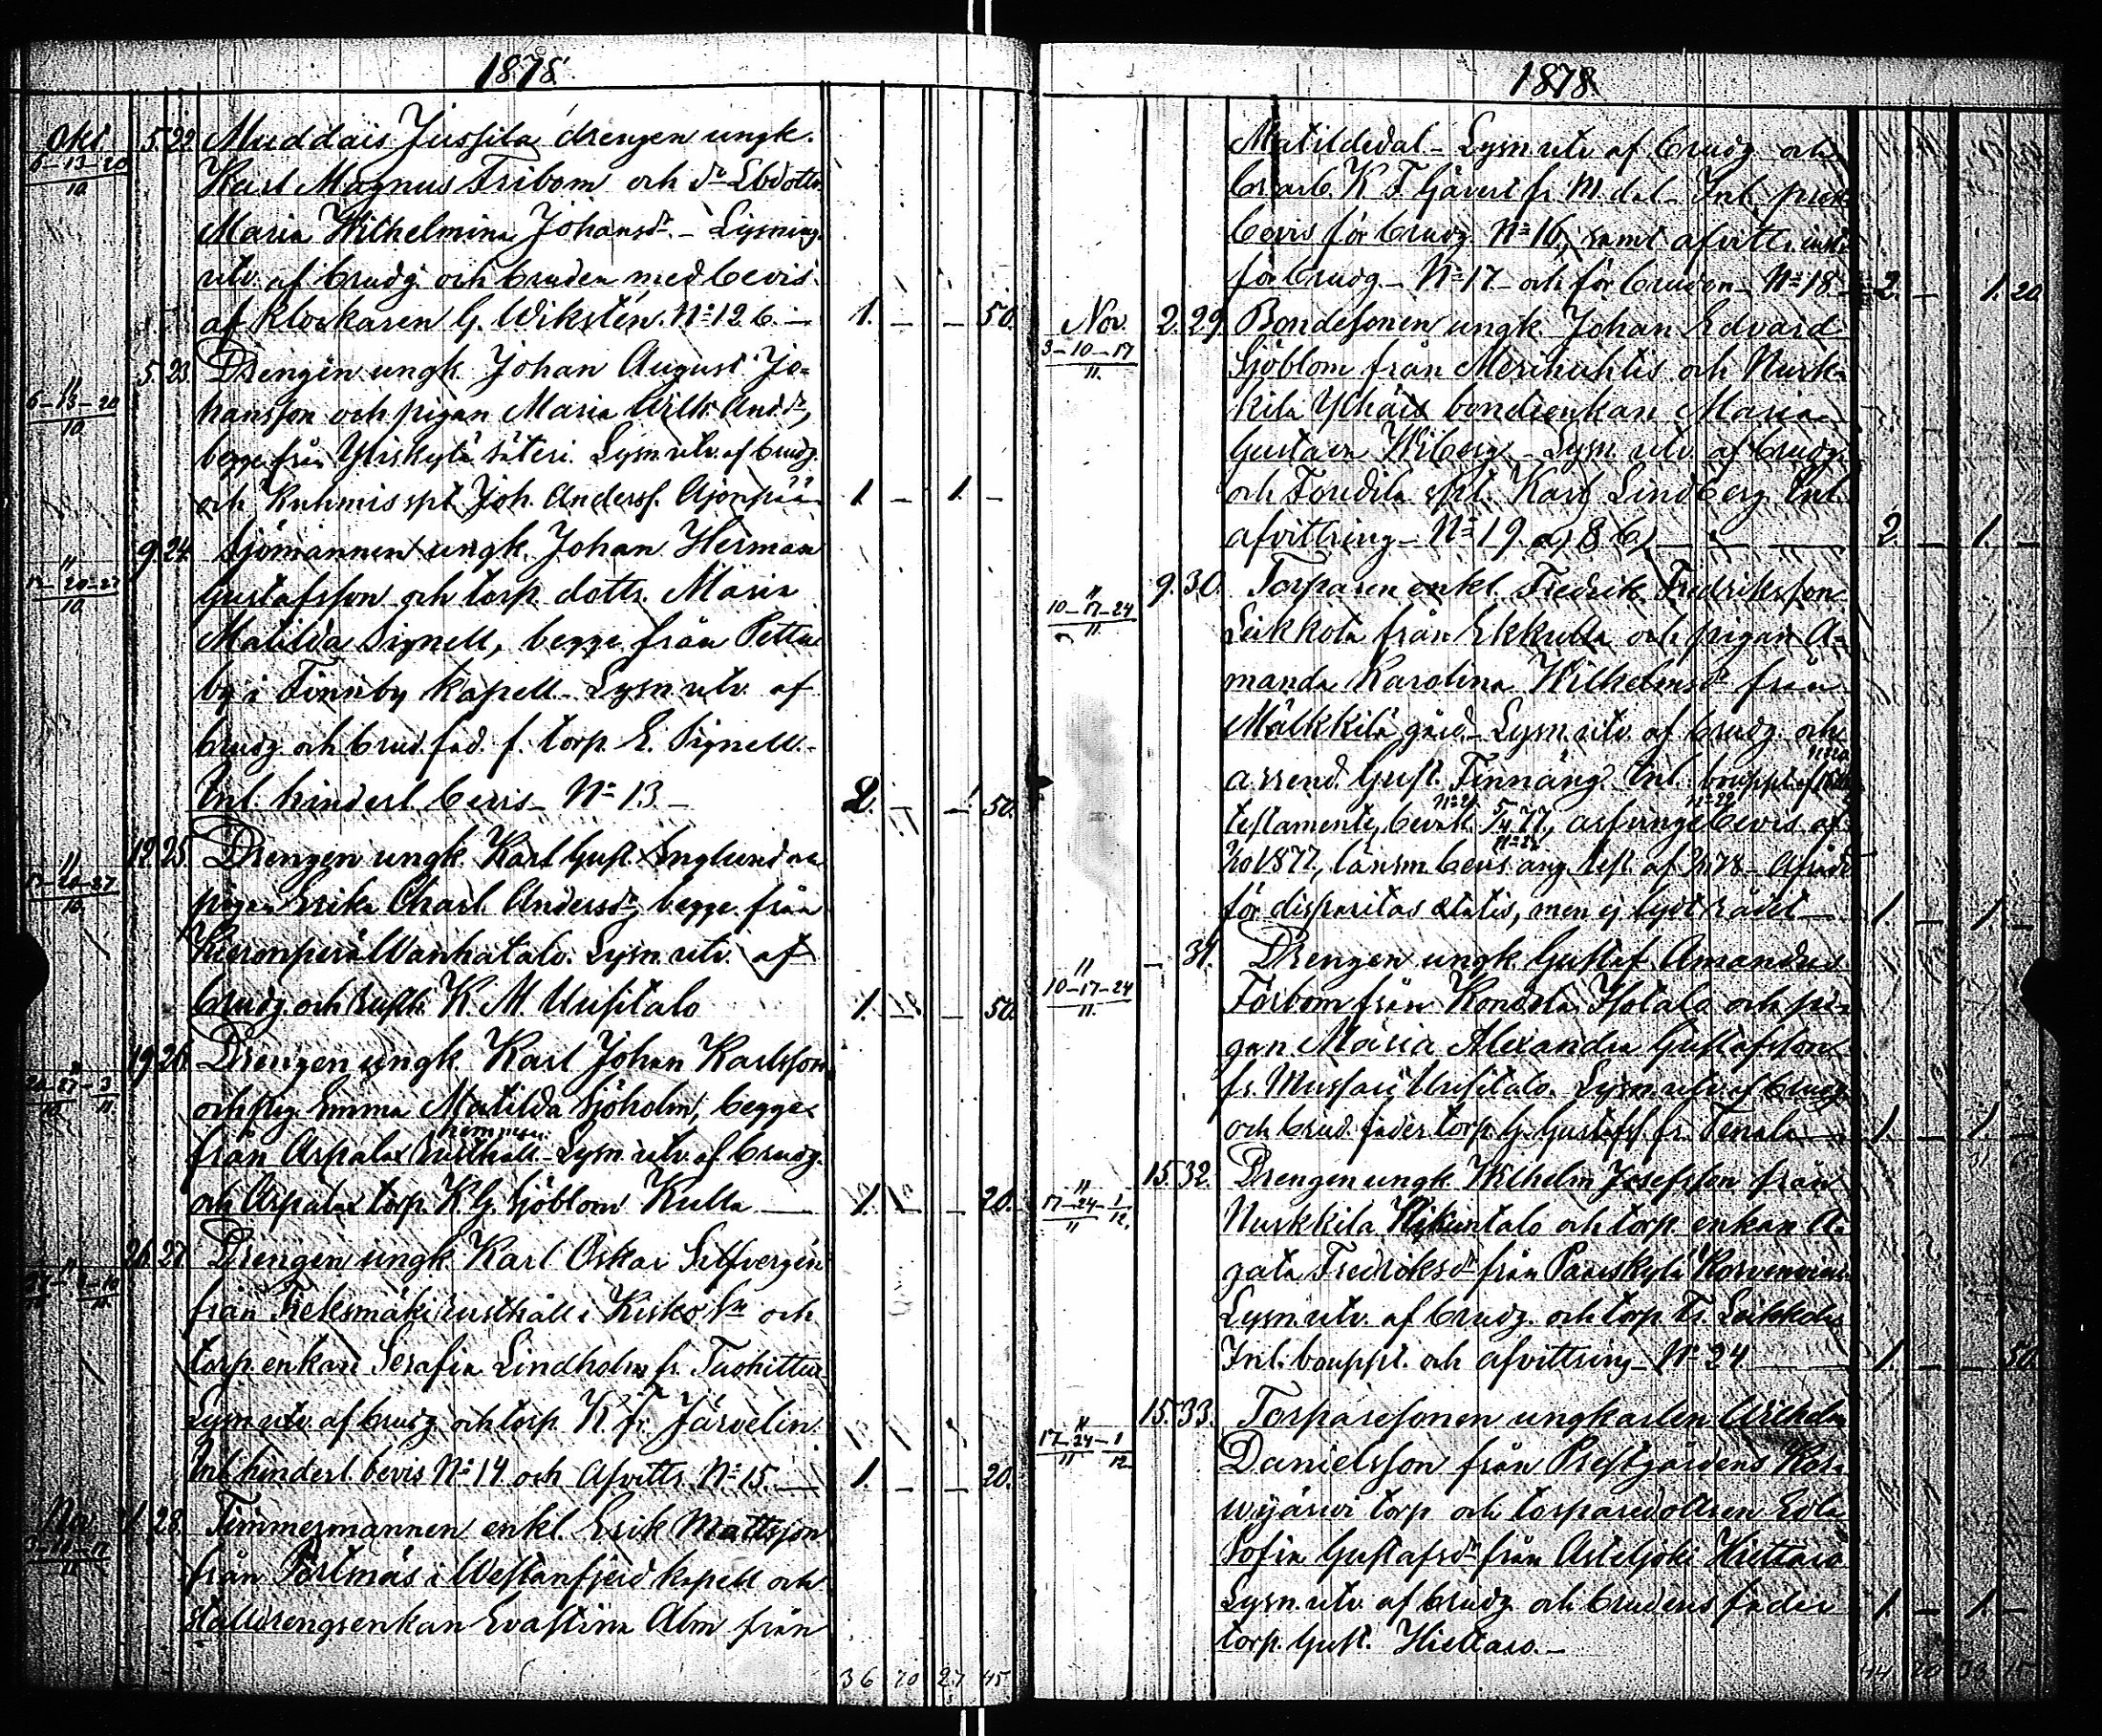 1878
Okt. 5. 22. Muddais Jussila drengen ungk.
6-13-20/10 Karl Magnus Fribom och dr Ebdottr
Maria Wilhelmina Johansdr. - Lysning
utv. af brudg. och bruden med bevis
af klockaren G. Wikstén. No 12 b. — 1. — — 50.
" 5. 23. Drengen ungk. Johan August Jo-
6-13-20/10 hansson och pigan Maria Wilh. Andr,
begge från Yliskylä säteri. Lysn. utv. af brudg.
och Kuhmis spt Joh. Anderss. Ajonpää 1. — 1. —
" 9. 24. Sjömannen ungk. Johan Herman
13-20-27/10 Gustafsson och torp. dottr. Maria
Matilda Signell, begge från Pettu
by i Finnby kapell. Lysn. utv. af
brudg. och brud. fad. f. torp. E. Signell. -
Inl. hinderl. bevis - No 13 - 2. — — 50.
" 12. 25. Drengen ungk. Karl Gust. Englund och
13-20-27/10 pigan Erika Charl. Andersdr, begge från
Wanhatalo. Lysn. utv. af
brudg. och rusth. K. M. Uusitalo 1. — — 50.
" 19. 26. Drengen ungk. Karl Johan Karlsson
20-27/10-3/11 och pig. Emma Matilda Sjöholm, begge
hemman
från Arpalax rusthåll - Lysn. utv. af brudg.
och Arpalax torp. K. G. Sjöblom Kulla — 1. — — 20.
" 26. 27. Drengen ungk. Karl Oskar Silfvergén
från rusthåll i Kisko Sn och
torp. enkan Serafia Lindholm fr. Tuohittu
Lysn. utv. af brudg. och torp. K. Fr. Järvelin
Inl. hinderl. bevis No 14 och Afvittr. No 15. — 1. — — 20.
Nov. 1. 28. Timmermannen enkl. Erik Mattsson
3-10-17/11 från Pörtnäs i Westanfjerd kapell och
stalldrengsenkan Evastina Alm från
36 70 27 45
1878
Matildedal - Lysn. utv. af brudg. och
br. arb. K. F. Gävert fr. M. dal - Inl. prest
bevis för brudg. No 16, samt afvittr. instr.
för brudg. - No 17 - och för bruden - No 18 - 2. — 1. 20.
Nov. 2. 29. Bondesonen ungk. Johan Edvard
3-10-17/11. Sjöblom från Merikuhlis och Nurk-
kila Ylhäis bondeenkan Maria
Gustava Wiberg. - Lysn. utv. af brudg.
och Toredila spt. Karl Lindberg. Inl.
afvittring - No 19. a) & b) — 2. — 1. —
" 9. 30. Torparen enkl. Fredrik Fredriksson
10-17-24/11. Leikkola från Ekkulla och pigan A-
manda Karolina Wilhelmsdr från
Mälkkilä gård. - Lysn. utv. af brudg. och
arrend. Gust. Finnäng. Inl. bouppt. af
No 21 No 22
testamente, bevak. 5/4 77, arfvinge bevis af
1877, länsm. bevis ang. test. af 78 - Afrådt
för disparitas ætatis, men ej lydt rådet — 1. — 1. —
" — 31. Drengen ungk. Gustaf Amandus
10-17-24/11. Forbom från Kondola Isotalo och pi-
gan Maria Alexandra Gustafsson
fr. Mussari Uusitalo. Lysn. utv. af brudg.
och brud. fader torp. G. Gustafss. fr. Tenala 1. — 1. —
" 15. 32. Drengen ungk. Wilhelm Josefsson från
17-24/11-1/12. Nurkkila och torp. enkan A-
gata Fredriksdr från Paariskylä
Lysn. utv. af brudg. och torp. Fr. Leikkola
Inl. bouppt. och afvittring - No 24 — 1. — — 50.
" 15. 33. Torparesonen ungkarlen Wilhelm
17-24/11-1/12 Danielsson från Prestgårdens Kar-
wjärwi torp och torparedottren Eva
Sofia Gustafsdr från Asteljoki Hiettaro
Lysn. utv. af brudg. och brudens fader 1. — 1. —
torp. Gust. Hiettaro. -